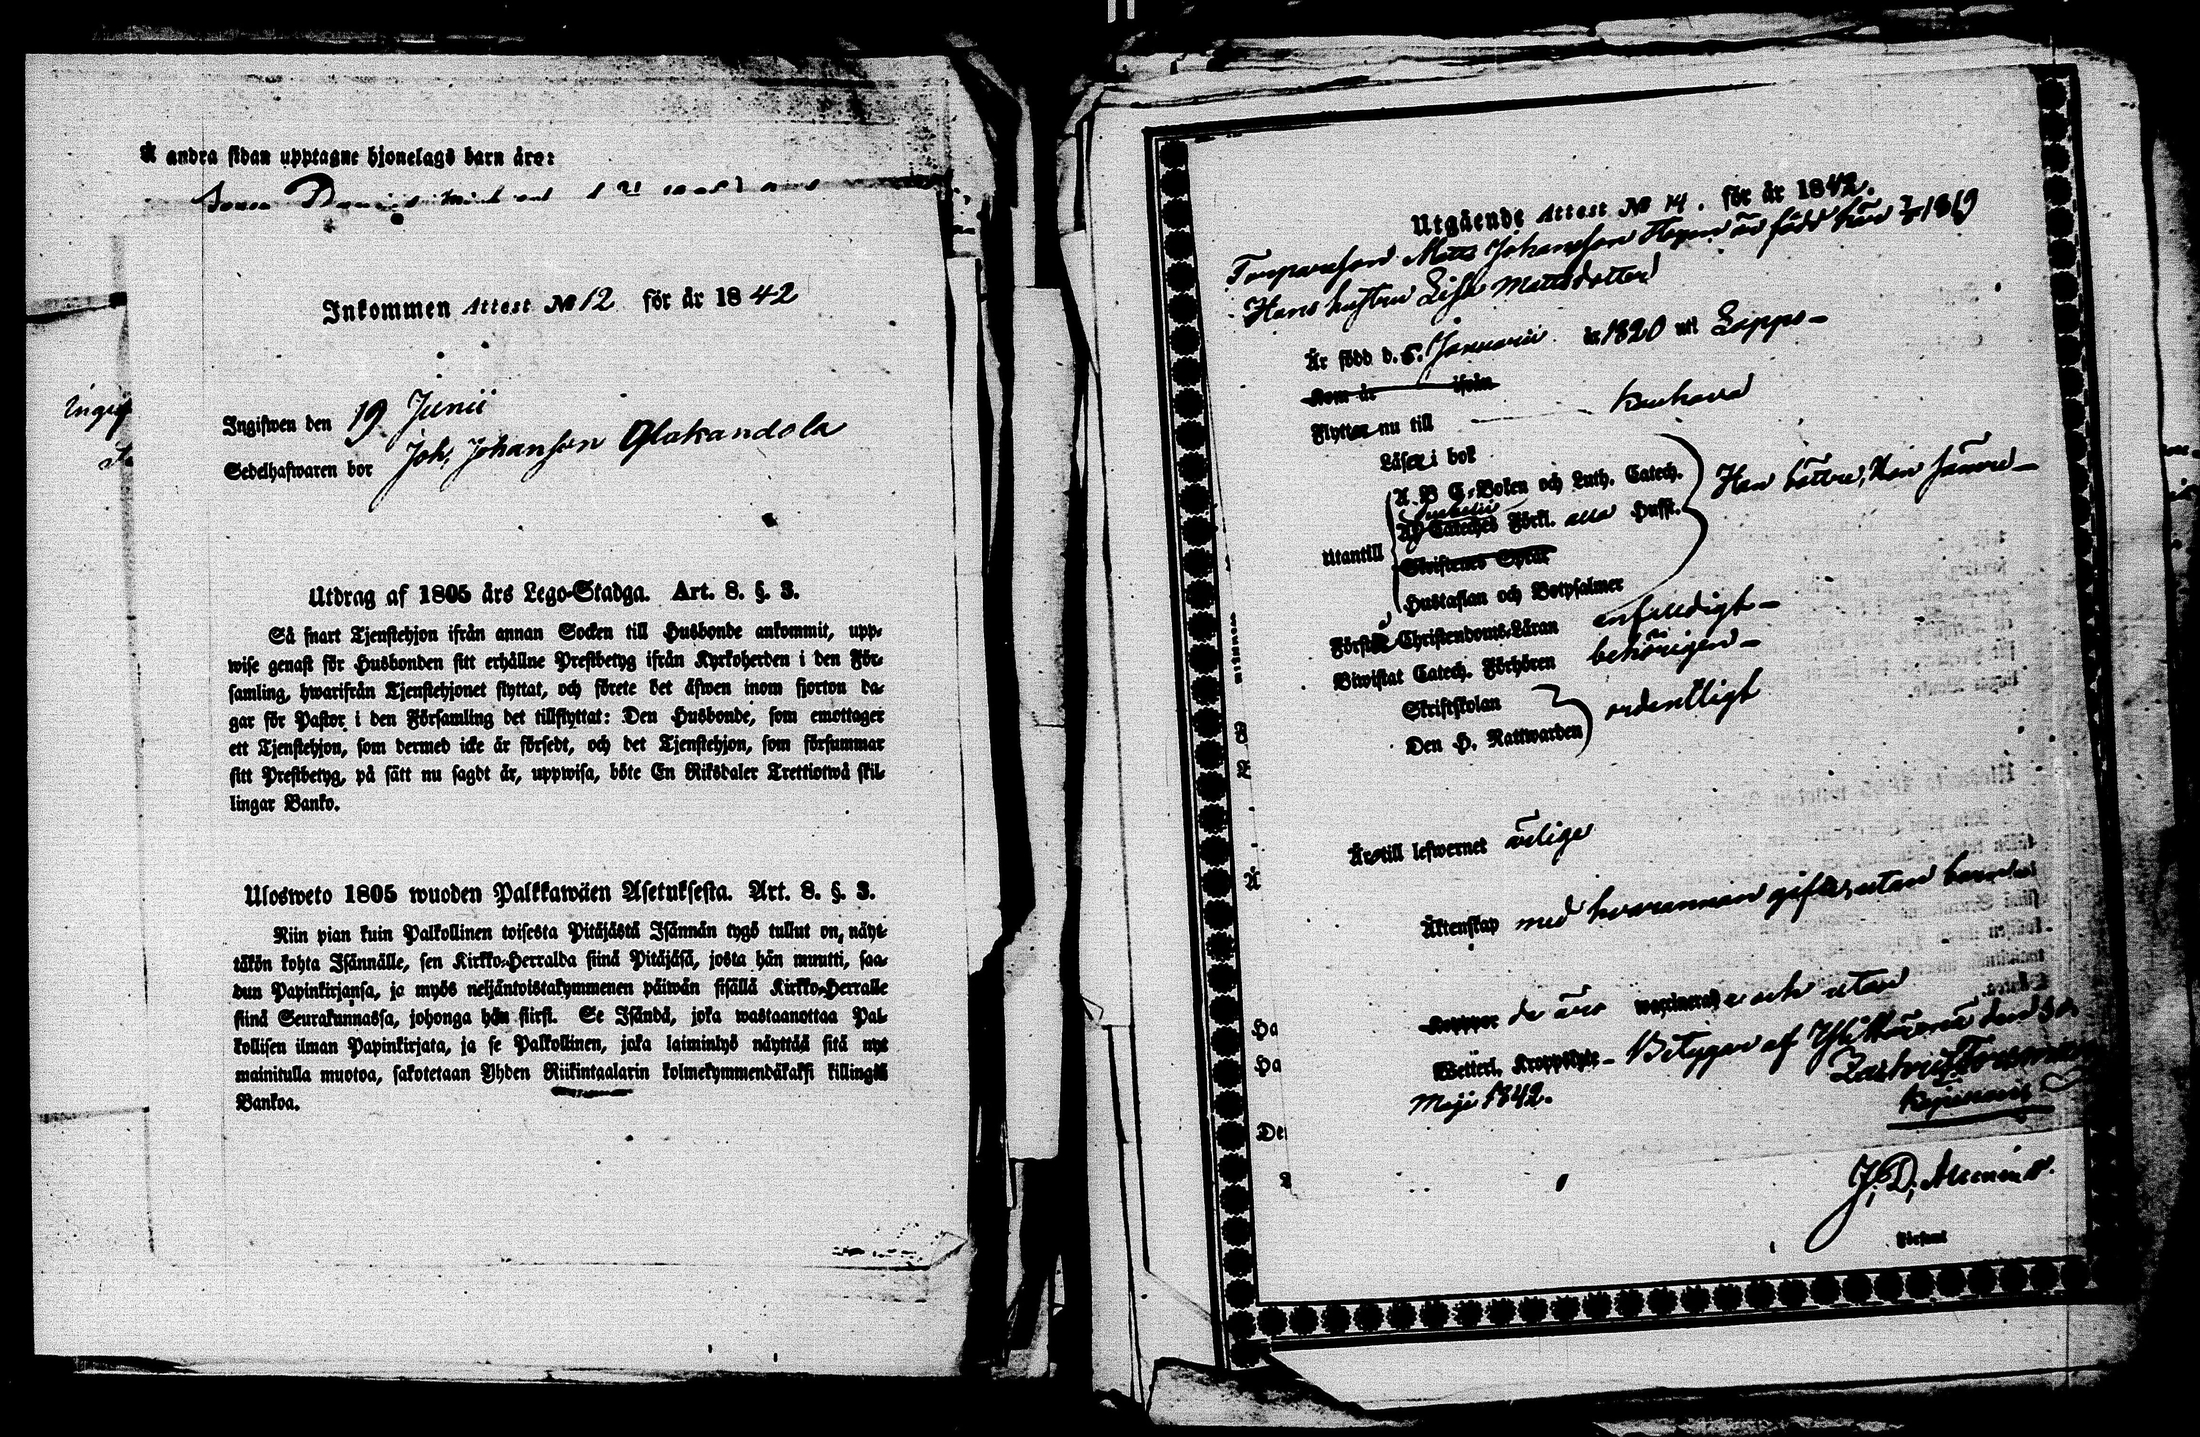 Å andra sidan upptagne hjonelags barn äro:
Sonen
Inkommen Attest № 12 för år 1842
Ingifwen den 19 Junii
Sedelhafwaren bor Joh. Johansson
Utdrag af 1805 års Lego-Stadga. Art. 8. §. 3.
Så snart Tjenstehjon ifrån annan Socken till Husbonde ankommit, upp-
wise genast för Husbonden sitt erhållne Prestbetyg ifrån Kyrkoherden i den För-
samling, hwarifrån Tjenstehjonet flyttat, och förete det äfwen inom fjorton da-
gar för Pastor i den Församling det tillflyttat: Den Husbonde, som emottager
ett Tjenstehjon, som dermed icke är försedt, och det Tjenstehjon, som försummar
sitt Prestbetyg, på sätt nu sagdt är, uppwisa, böte En Riksdaler Trettiotwå skil-
lingar Banko.
Ulosweto 1805 wuoden Palkkawäen Asetuksesta. Art. 8. §. 3.
Niin pian kuin Palkollinen toisesta Pitäjästä Isännän tygö tullut on, näyt-
täkön kohta Isännälle, sen Kirkko-Herralda siinä Pitäjäsä, josta hän muutti, saa-
dun Papinkirjansa, ja myös neljäntoistakymmenen päiwän sisällä Kirkko-Herralle
siinä Seurakunnassa, johonga hän siirsi. Se Isändä, joka wastaanottaa Pal-
kollisen ilman Papinkirjata, ja se Palkollinen, joka laiminlyö näyttää sitä nyt
mainitulla muotoa, sakotetaan Yhden Riikintaalarin kolmekymmendäkaksi killingiä
Bankoa.
Utgående Attest № 14. för år 1842.
Torparesson Matts Johansson är född här 1819
Hans hustru Lisa Mattsdotter
Är född d. 5. Januarii år 1820 uti Lappo
Kom år ifrån
Flytter nu till Kauhava
Läser i bok
A B C-Boken och Luth. Catech. Han bättre, hon sämre
Cateches Förkl. alla Husst.
Utantill
Skriftenes Språk
Hustaflan och Botpsalmer
Förstå Christendoms-Läran enfaldigt
Biwistat Catech. Förhören behörigen
Skriftskolan
ordentligt
Den H. Nattwarden
Äro till lefwernet ärlige
Äktenskap med hvarannan gifte, utan barn
Koppor de äro waxinerade och utan
Wetterl. Kroppslyte Betygar af Ylihärmä den
Maji 1842.
Zachris Forsman
J. D. Alcenius